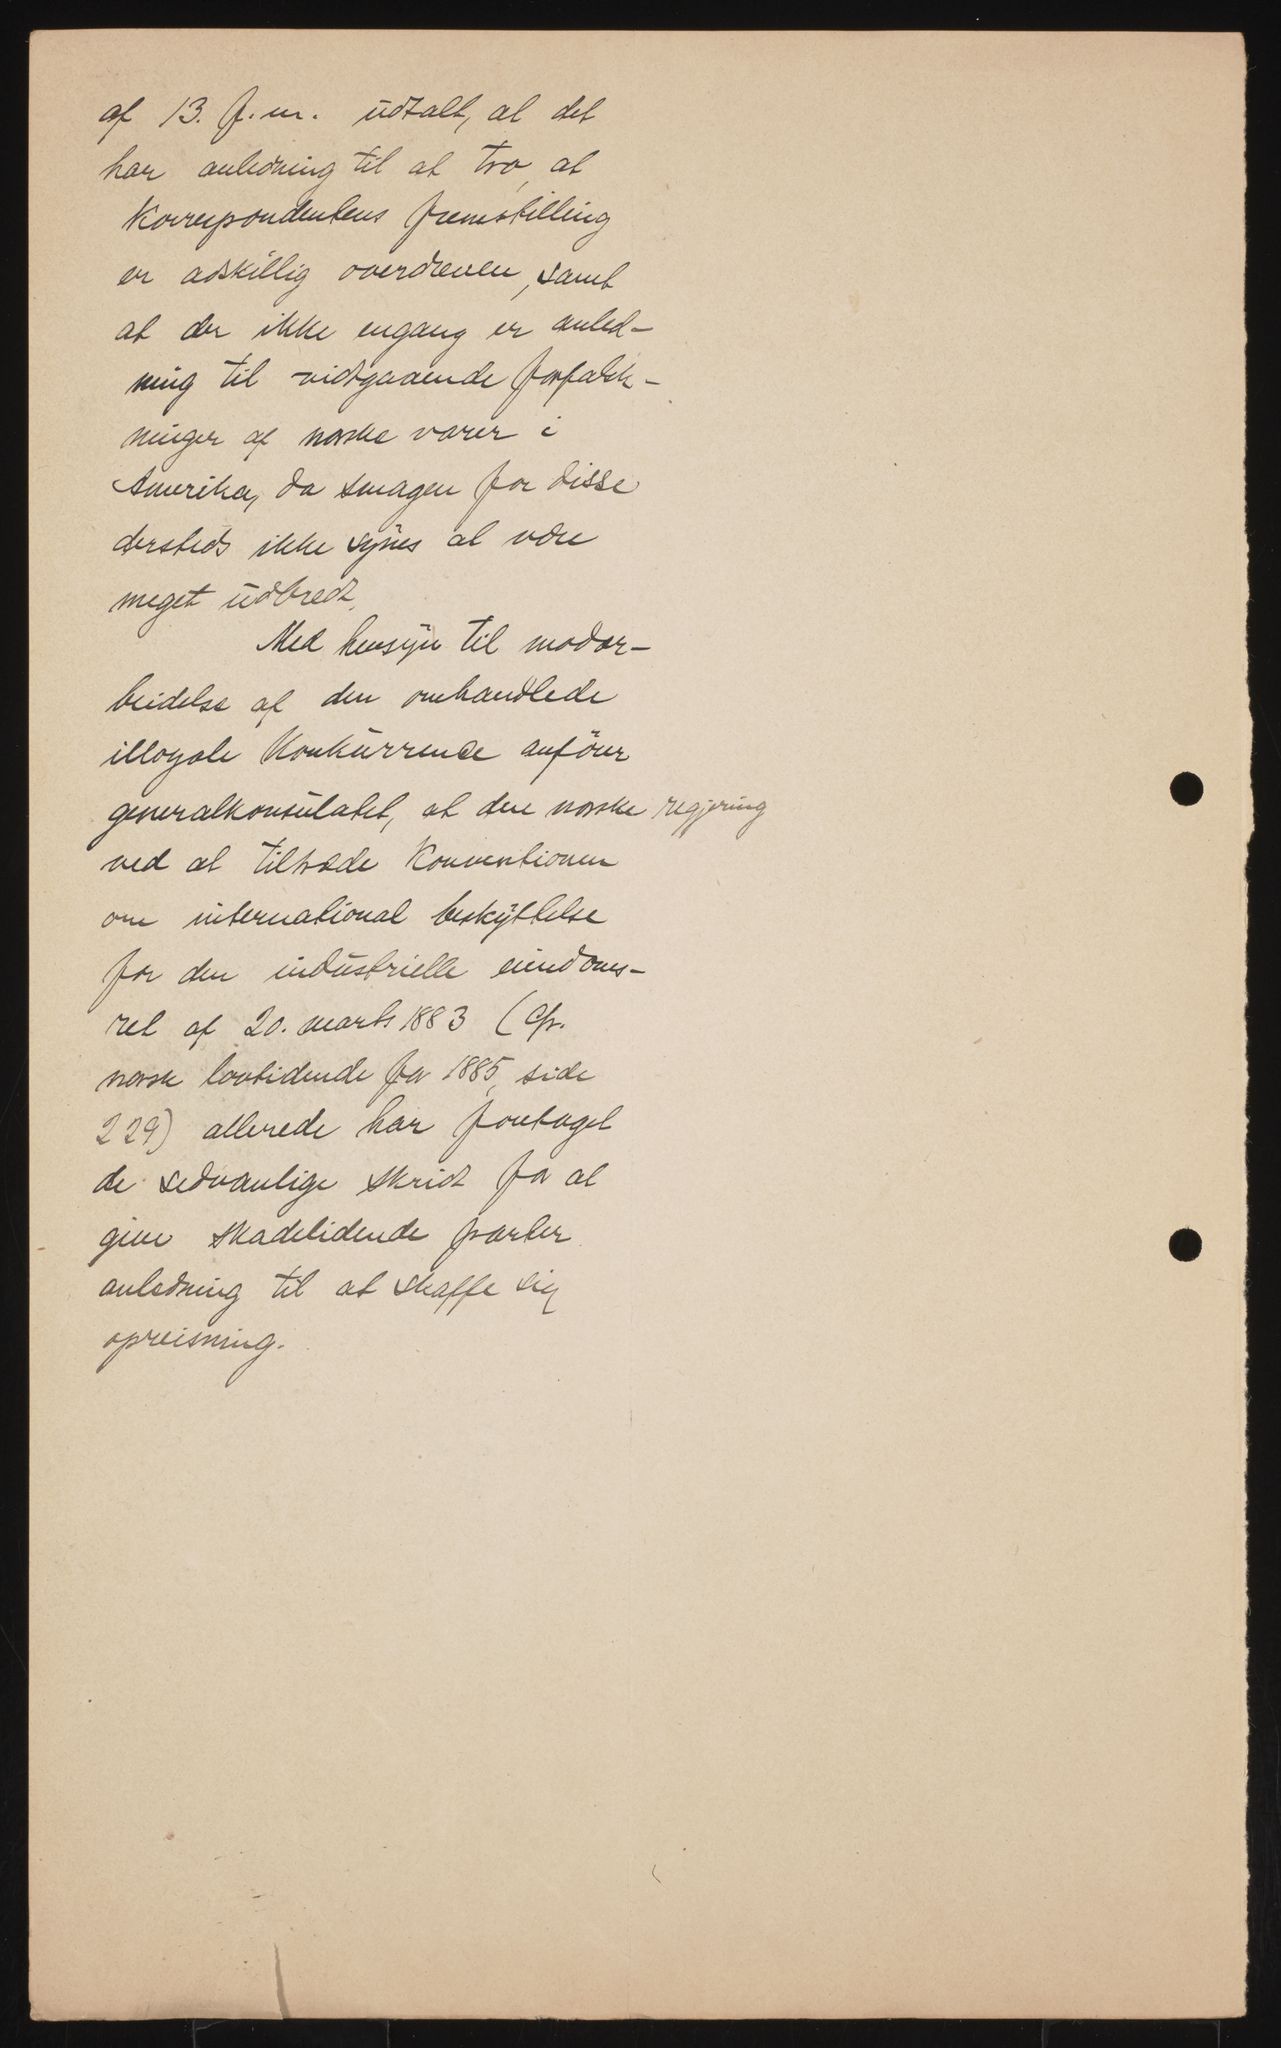 af 13. f. m. udtalt, at det
har anledning til at tro, at
Korrespondentens fremstilling
er adskillig overdreven, samt
at der ikke engang er anled-
ning til vidtgaaende forfalsk-
ninger af norske varer i
Amerika, da smagen for disse
dersteds ikke synes at være
meget udbredt.
Med hensyn til modar-
beidelse af den omhandlede
illoyale Konkurrence anfører
generalkonsulatet, at den norske regjering
ved at tiltræde Konventionen
om international beskyttelse
for den industrielle eiendoms-
ret af 20. marts 1883 (Cfr.
norsk lovtidende for 1885, side
229) allerede har foretaget
de sedvanlige skridt for at
give skadelidende parter
anledning til at skaffe sig
opreisning.